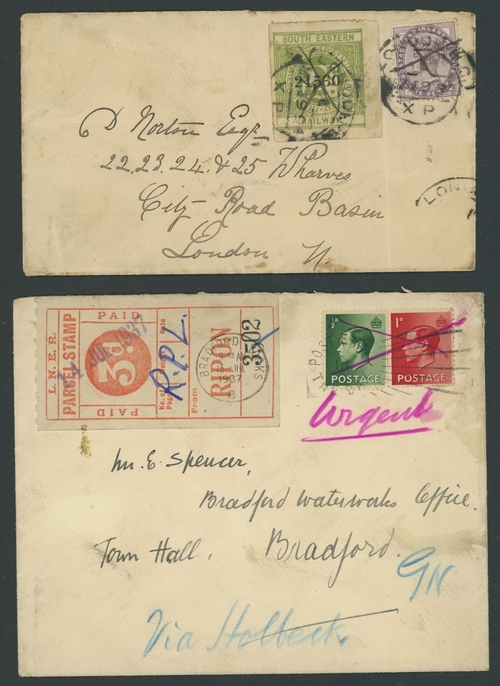 SOUTH EASTERN
21560
RAILWAY
X P
D Norton Esqr
22.23.24. & 25 Wharves
City Road Basin
London N.
LON
L.N.E.R.
PARCEL STAMP
PAID
3d
PAID
4 JUL 1937
R.P.L.
From
RIPON
3502
BRADFORD
1937
½d
1d
POSTAGE
POSTAGE
Urgent
Mr. E. Spencer,
Bradford Waterworks Office.
Town Hall.
Bradford.
GN
Via Holbeck.